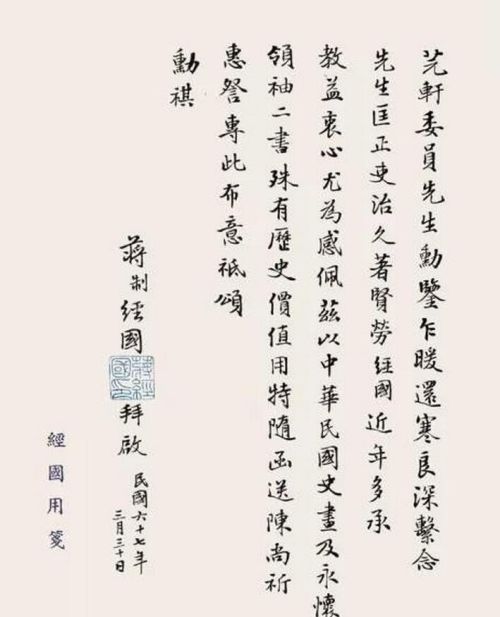 芃軒委員先生勳鑒乍暖還寒良深繫念
先生匡正吏治久著賢勞經國近年多承
教益衷心尤為感佩茲以中華民國史畫及永懷
領袖二書殊有歷史價值用特隨函送陳尚祈
惠詧專此布意祗頌
勳祺
蔣制經國
蔣經國印
拜啟
民國六十七年
三月三十日
經國用箋